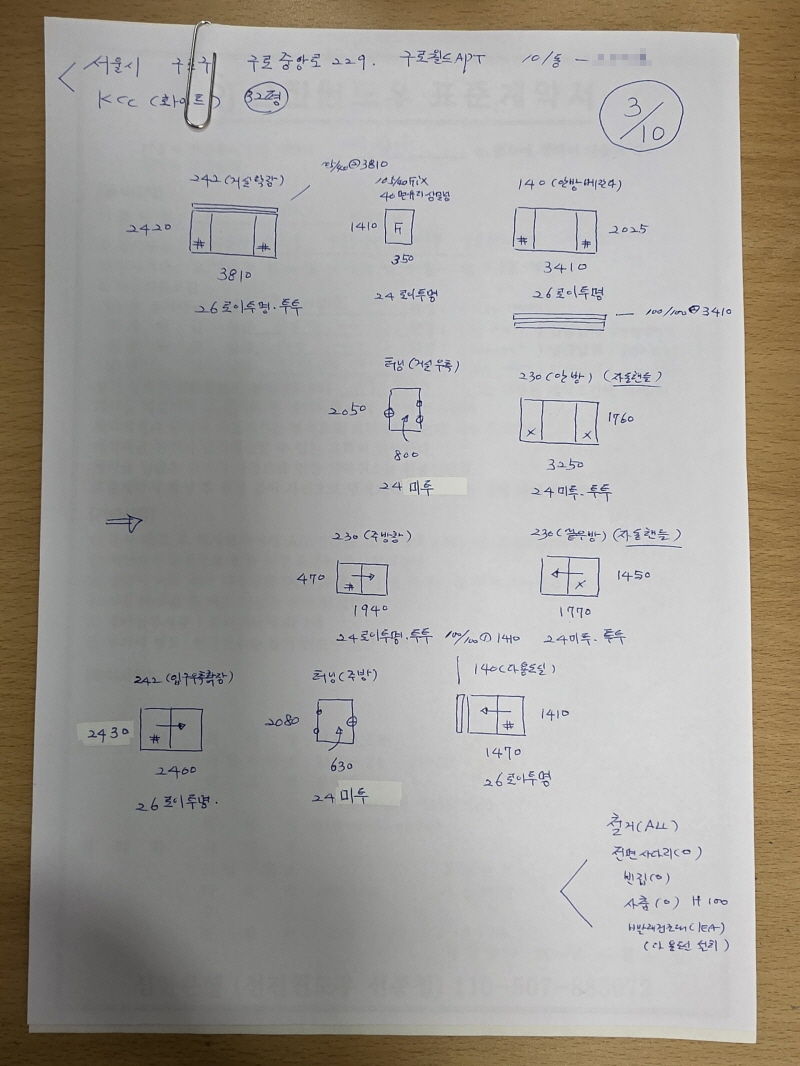 서울시 구로구 구로중앙로 229. 구로월드APT 10/동 -
KCC (화이트) 32평
3/10
242 (거실확장)
75/40 @3810
2420
#
#
3810
26로이투명.투투
105/40 Fix
40면유리삼면날
1410
Fi
350
24로이투명
140 (안방베란다)
#
#
2025
3410
26로이투명
100/100 @ 3410
터닝 (거실우측)
2050
800
24 미투
230 (안방) (자동핸들)
1760
X
X
3250
24미투.투투
⇒
230 (주방창)
470
#
1940
24로이투명.투투
230 (실무방) (자동핸들)
1450
X
1770
24미투.투투
242 (입구우측확장)
2430
#
2400
26로이투명.
터닝 (주방)
2080
630
24 미투
100/100 @ 1410
140 (다용도실)
1410
#
1470
26로이투명
철거 (ALL)
전면사다리 (O)
빈집 (O)
사춤 (O) H 100
(1EA)